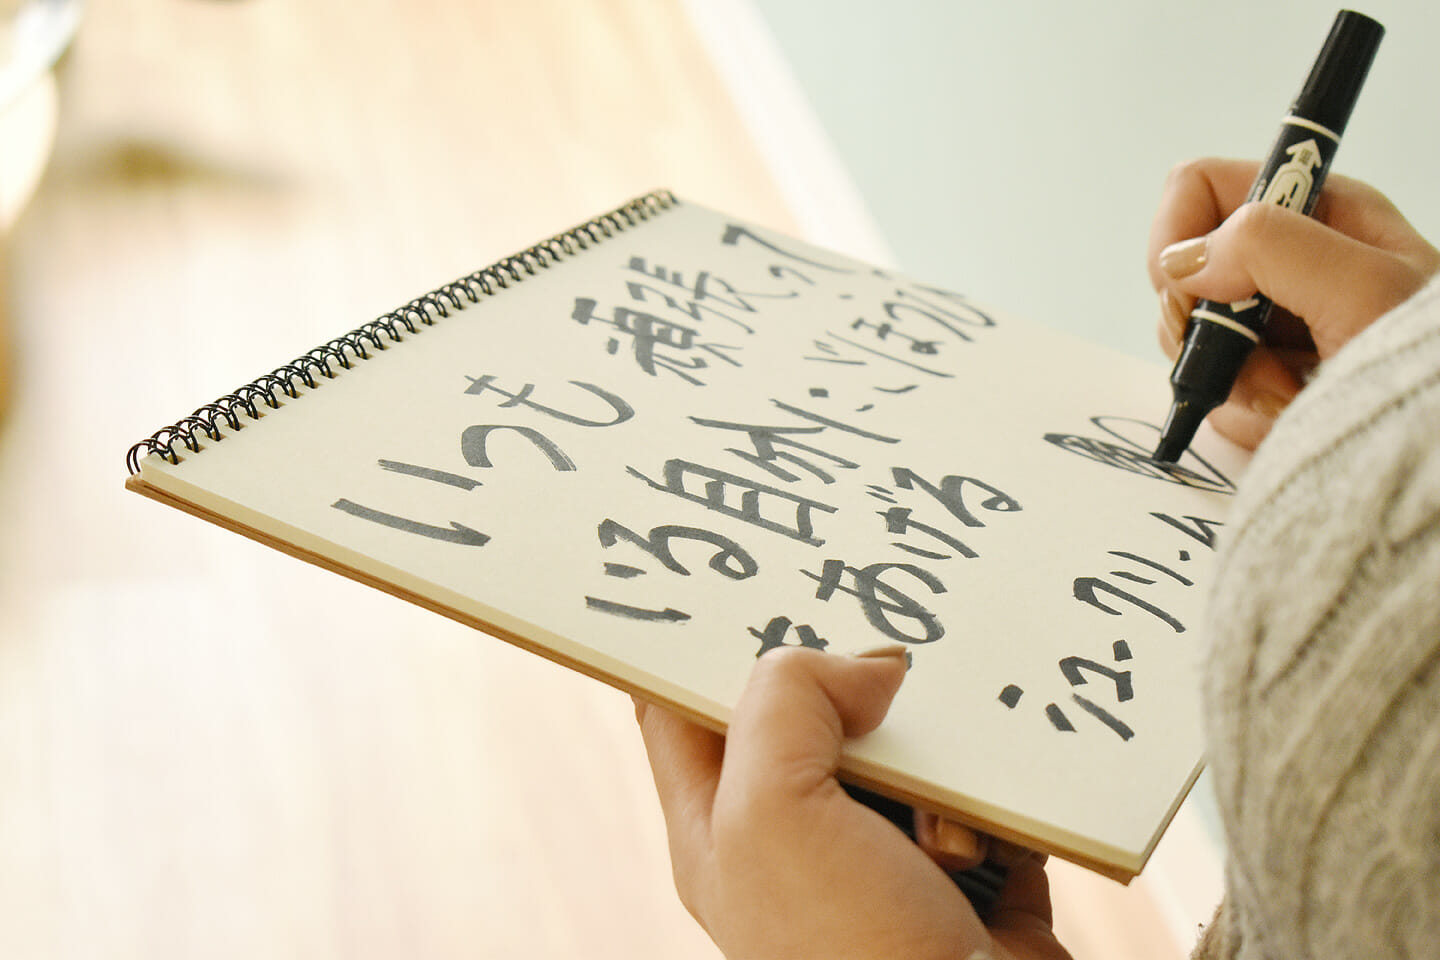 いつも頑張って
いる自分にごほうび
をあげる
・シュークリーム